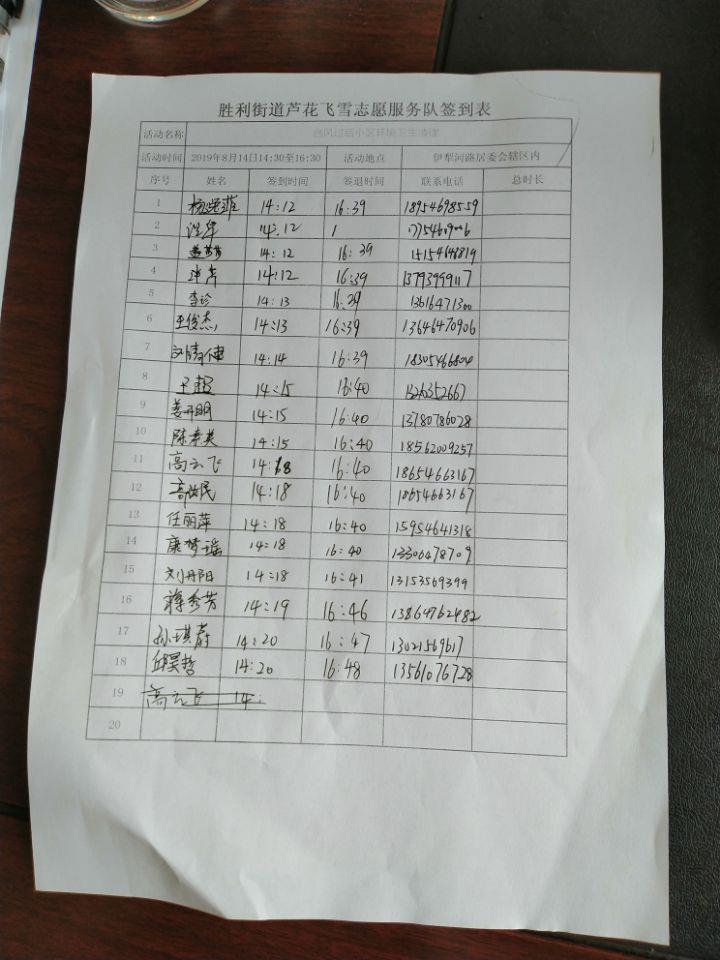 胜利街道芦花飞雪志愿服务队签到表
活动名称 台风过后小区环境卫生清理
活动时间 2019年8月14日14:30至16:30 活动地点 伊犁河路居委会辖区内
序号 姓名 签到时间 签退时间 联系电话 总时长
1 14:12 16:39 18954698559
2 14:12
3 14:12 16:39 15154648819
4 14:12 16:39
5 李珍 14:13 16:39 13616471300
6 王俊杰 14:13 16:39 13646470906
7 14:14 16:39 18305466804
8 王超 14:15 16:40
9 姜丹明 14:15 16:40 13780786028
10 陈素英 14:15 16:40 18562009257
11 高云飞 14:18 16:40 18654663167
12 16:40 14:18 18654663167
13 任丽萍 14:18 16:40 15954641318
14 康梦瑶 14:18 16:40 13306478709
15 刘丹阳 14:18 16:41 13153569399
16 蒋秀芳 14:19 16:46 13864762482
17 孙琪蔚 14:20 16:47 13021569617
18 邱昊哲 14:20 16:48 13561076728
19 高云飞 14:
20